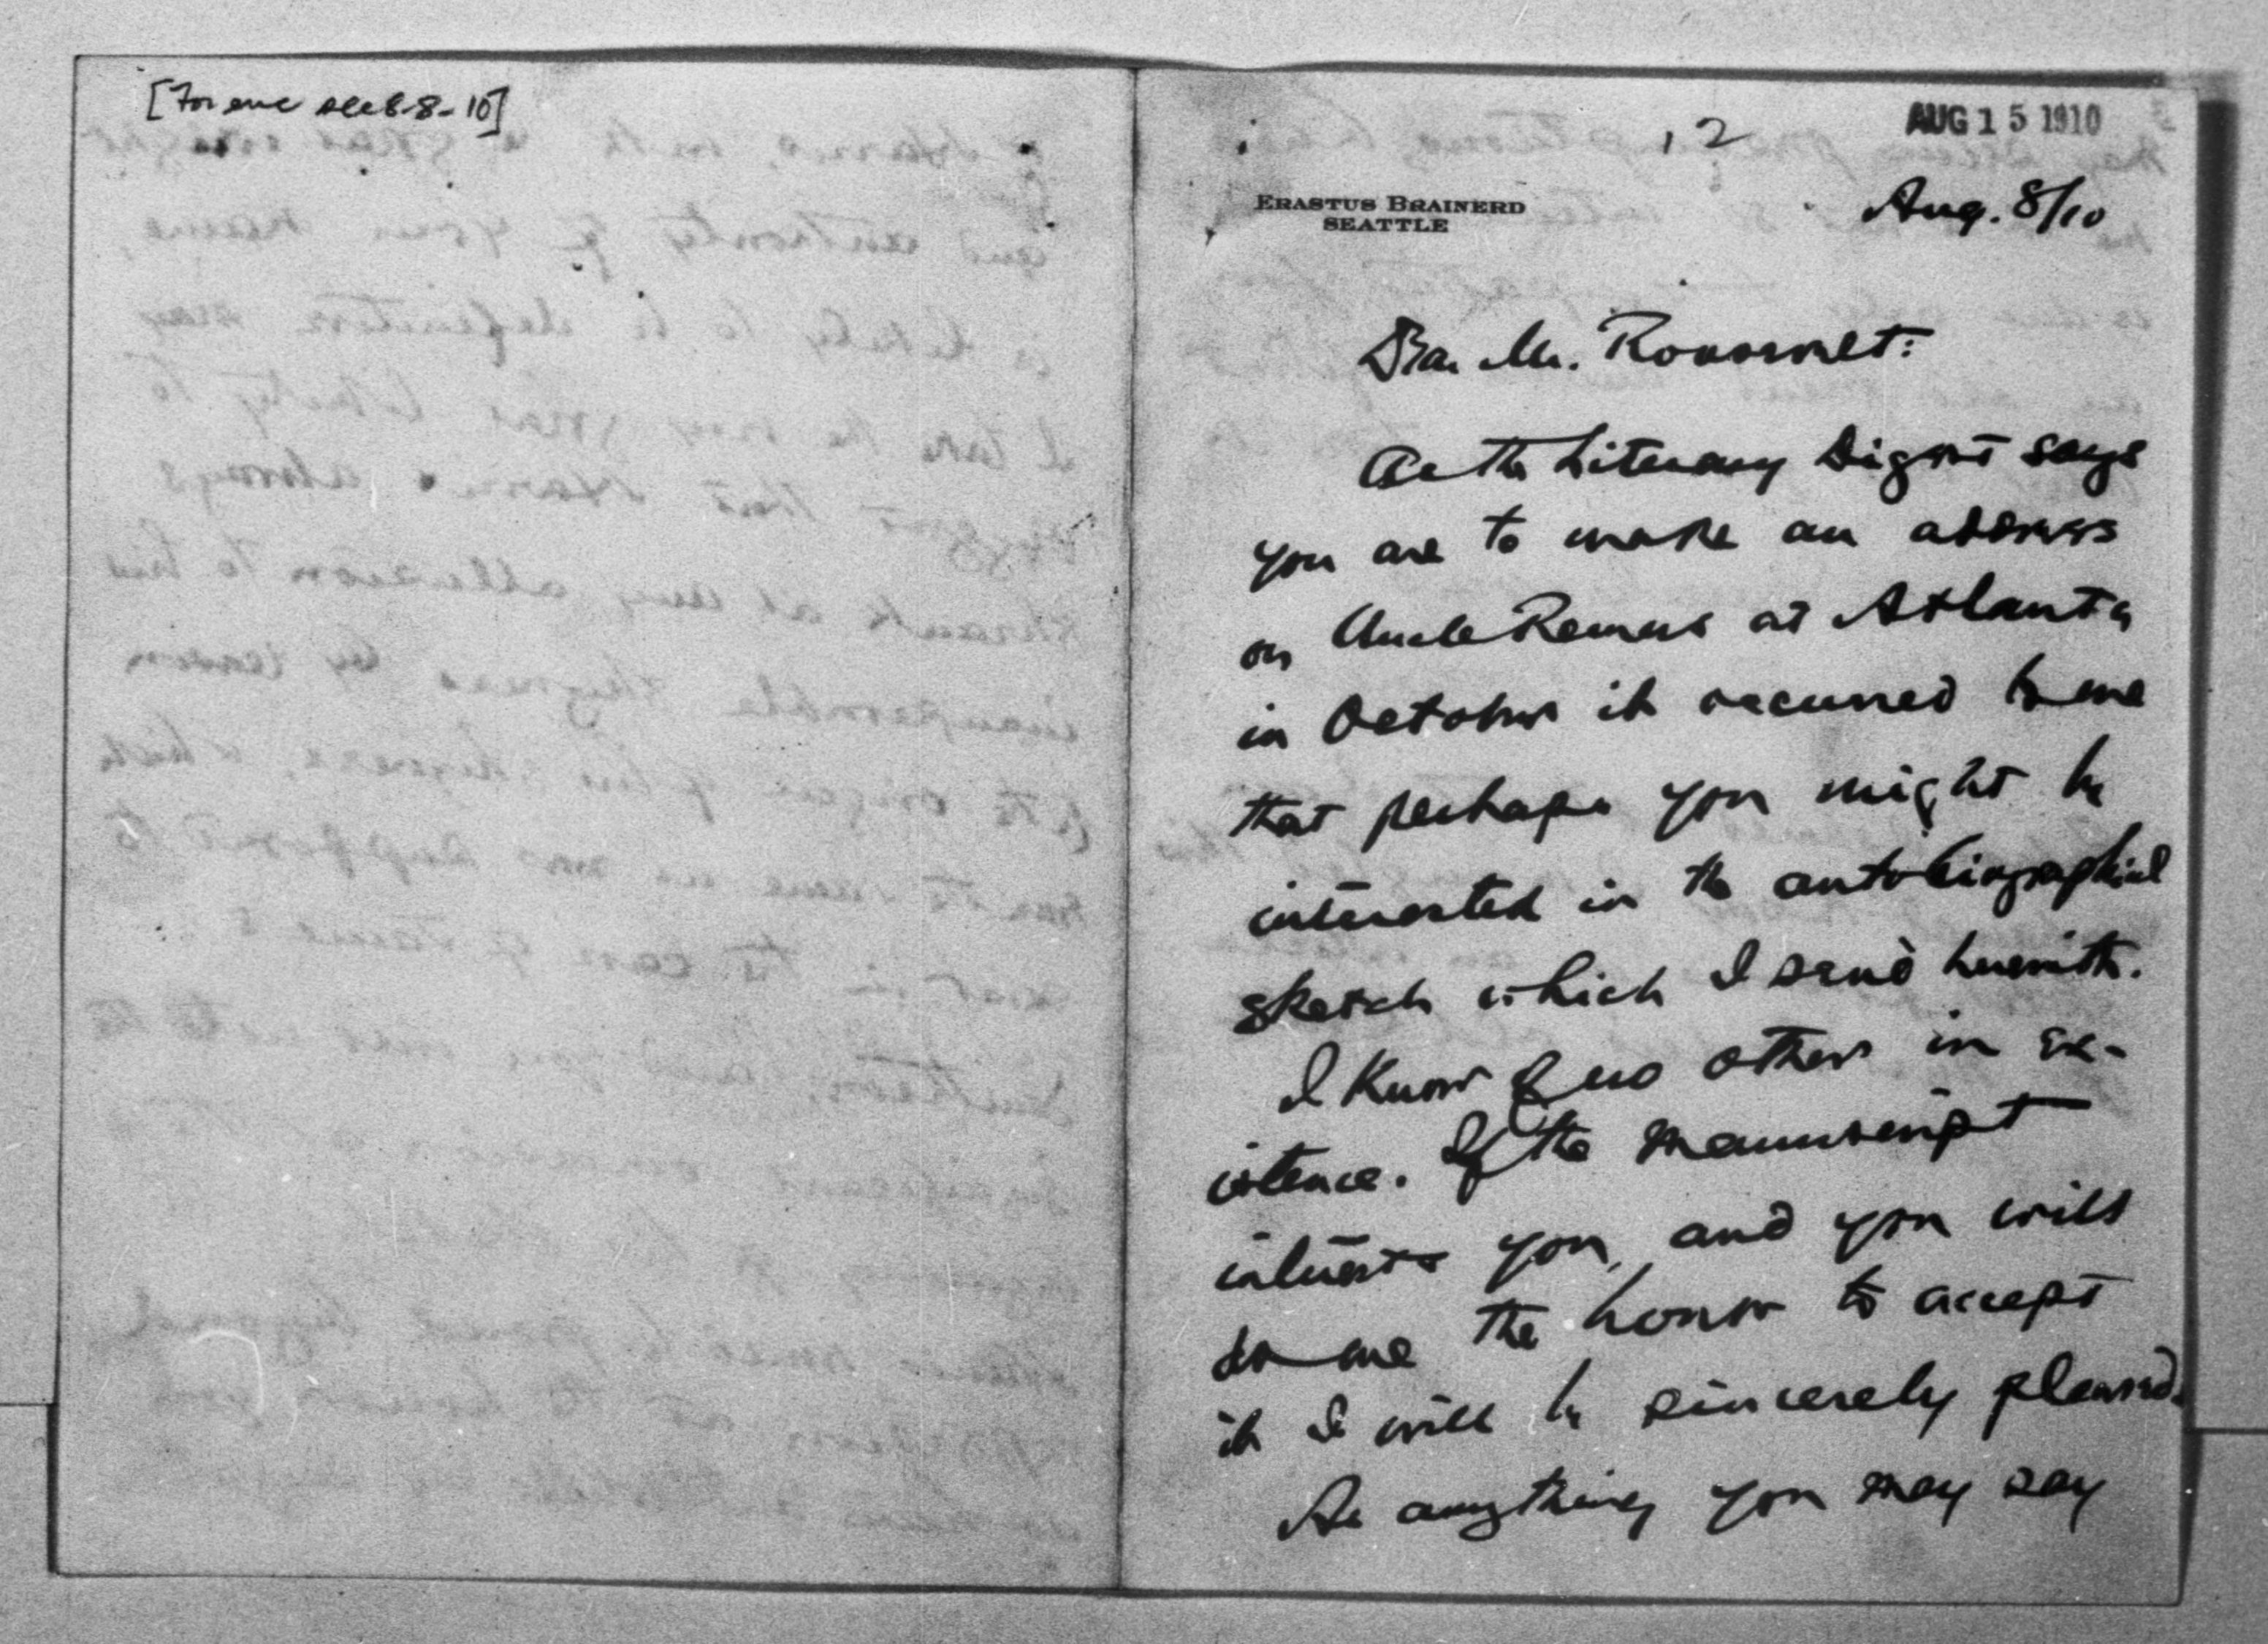 [For enc see 8-8-10]
12
AUG 15 1910
ERASTUS BRAINERD
SEATTLE
Aug. 8/10
Dear Mr. Roosevelt:
As the Literary Digest says
you are to make an address
on Uncle Remus at Atlanta
in October it occurred to me
that perhaps you might be
interested in the autobiographical
sketch which I send herewith.
I know of no other in ex-
istence. If the manuscript
interests you, and you will
do me the honor to accept
it I will be sincerely pleased.
As anything you may say